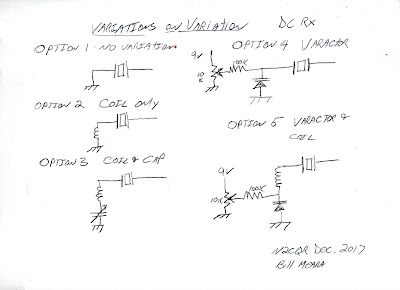 VARIATIONS ON VARIATION DC RX
OPTION 1 - NO VARIATION
OPTION 2 COIL ONLY
OPTION 3 COIL & CAP
OPTION 4 VARACTOR
9V
10K
100K
OPTION 5 VARACTOR & COIL
9V
10K
100K
N2CQR DEC. 2017
Bill MEARA